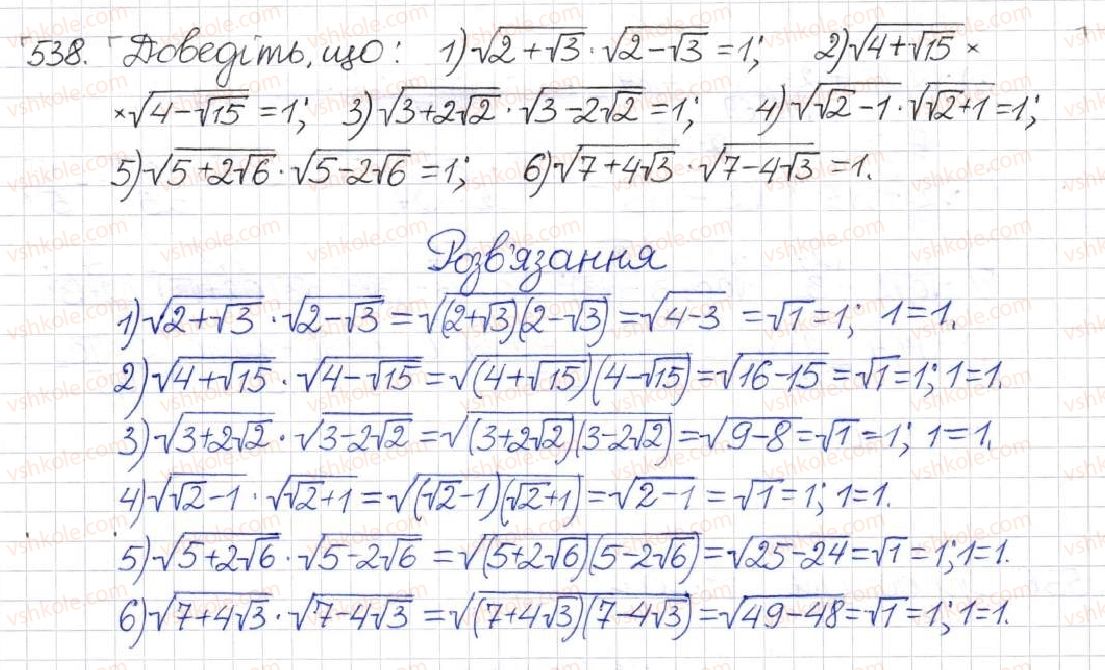 538. Доведіть, що: 1) √(2+√3) · √(2-√3) = 1; 2) √(4+√15) ×
× √(4-√15) = 1; 3) √(3+2√2) · √(3-2√2) = 1; 4) √(√2-1) · √(√2+1) = 1;
5) √(5+2√6) · √(5-2√6) = 1; 6) √(7+4√3) · √(7-4√3) = 1.
Розв'язання
1) √(2+√3) · √(2-√3) = √((2+√3)(2-√3)) = √(4-3) = √1 = 1; 1=1.
2) √(4+√15) · √(4-√15) = √((4+√15)(4-√15)) = √(16-15) = √1 = 1; 1=1.
3) √(3+2√2) · √(3-2√2) = √((3+2√2)(3-2√2)) = √(9-8) = √1 = 1; 1=1.
4) √(√2-1) · √(√2+1) = √((√2-1)(√2+1)) = √(2-1) = √1 = 1; 1=1.
5) √(5+2√6) · √(5-2√6) = √((5+2√6)(5-2√6)) = √(25-24) = √1 = 1; 1=1.
6) √(7+4√3) · √(7-4√3) = √((7+4√3)(7-4√3)) = √(49-48) = √1 = 1; 1=1.